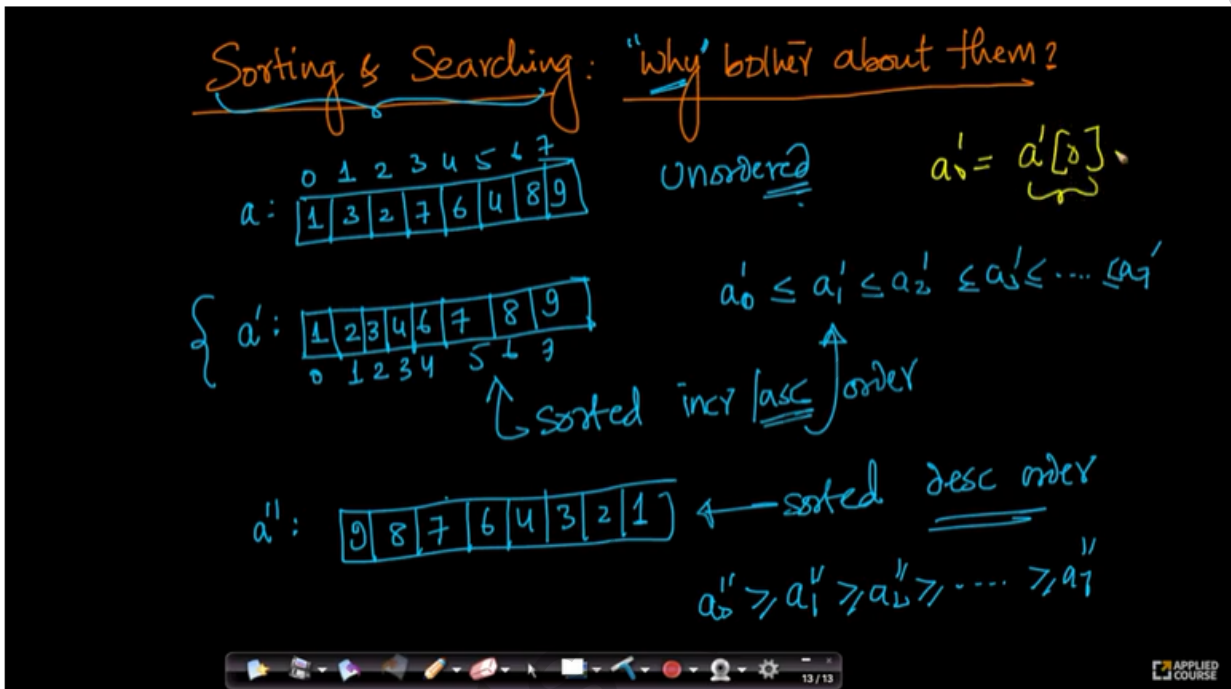 Sorting & Searching: "Why" bother about them?
0 1 2 3 4 5 6 7
a: 1 3 2 7 6 4 8 9
Unordered
a'₀ = a'[0]
a'₀ ≤ a'₁ ≤ a'₂ ≤ a'₃ ≤ .... ≤ a'₇
{ a': 1 2 3 4 6 7 8 9
0 1 2 3 4 5 6 7
sorted incr/asc order
a'': 9 8 7 6 4 3 2 1 ← sorted desc order
a''₀ ≥ a''₁ ≥ a''₂ ≥ ..... ≥ a''₇
13 / 13
APPLIED
COURSE